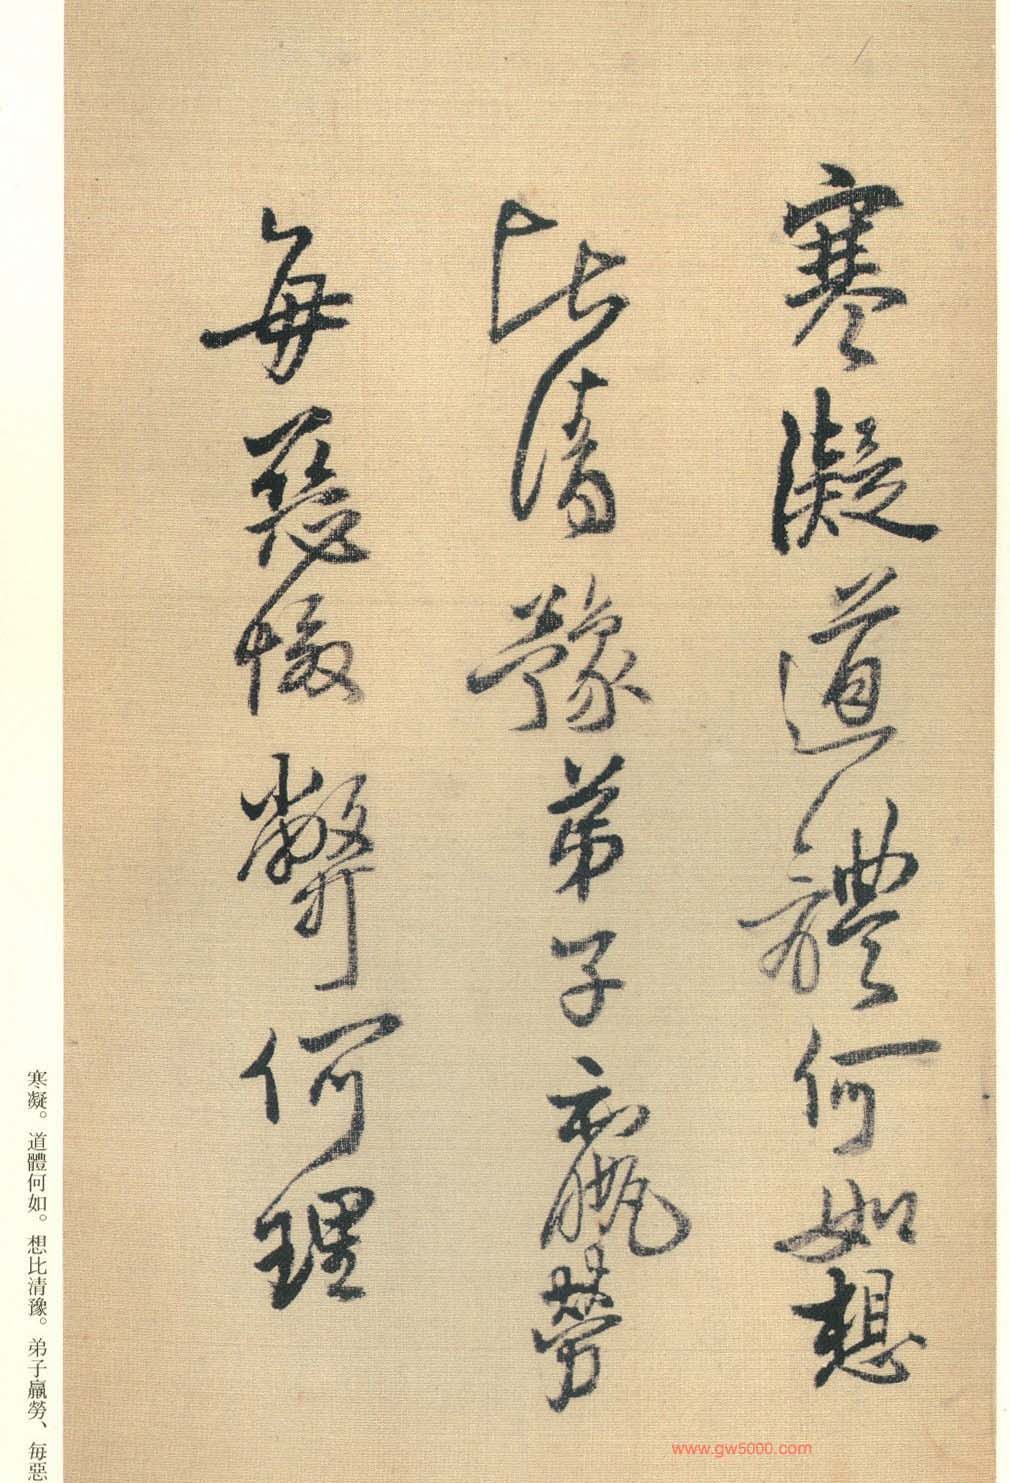 寒凝道體何如想
比清豫弟子羸勞
每惡懷弊何理
寒凝。道體何如。想比清豫。弟子羸勞、每惡
www.gw5000.com